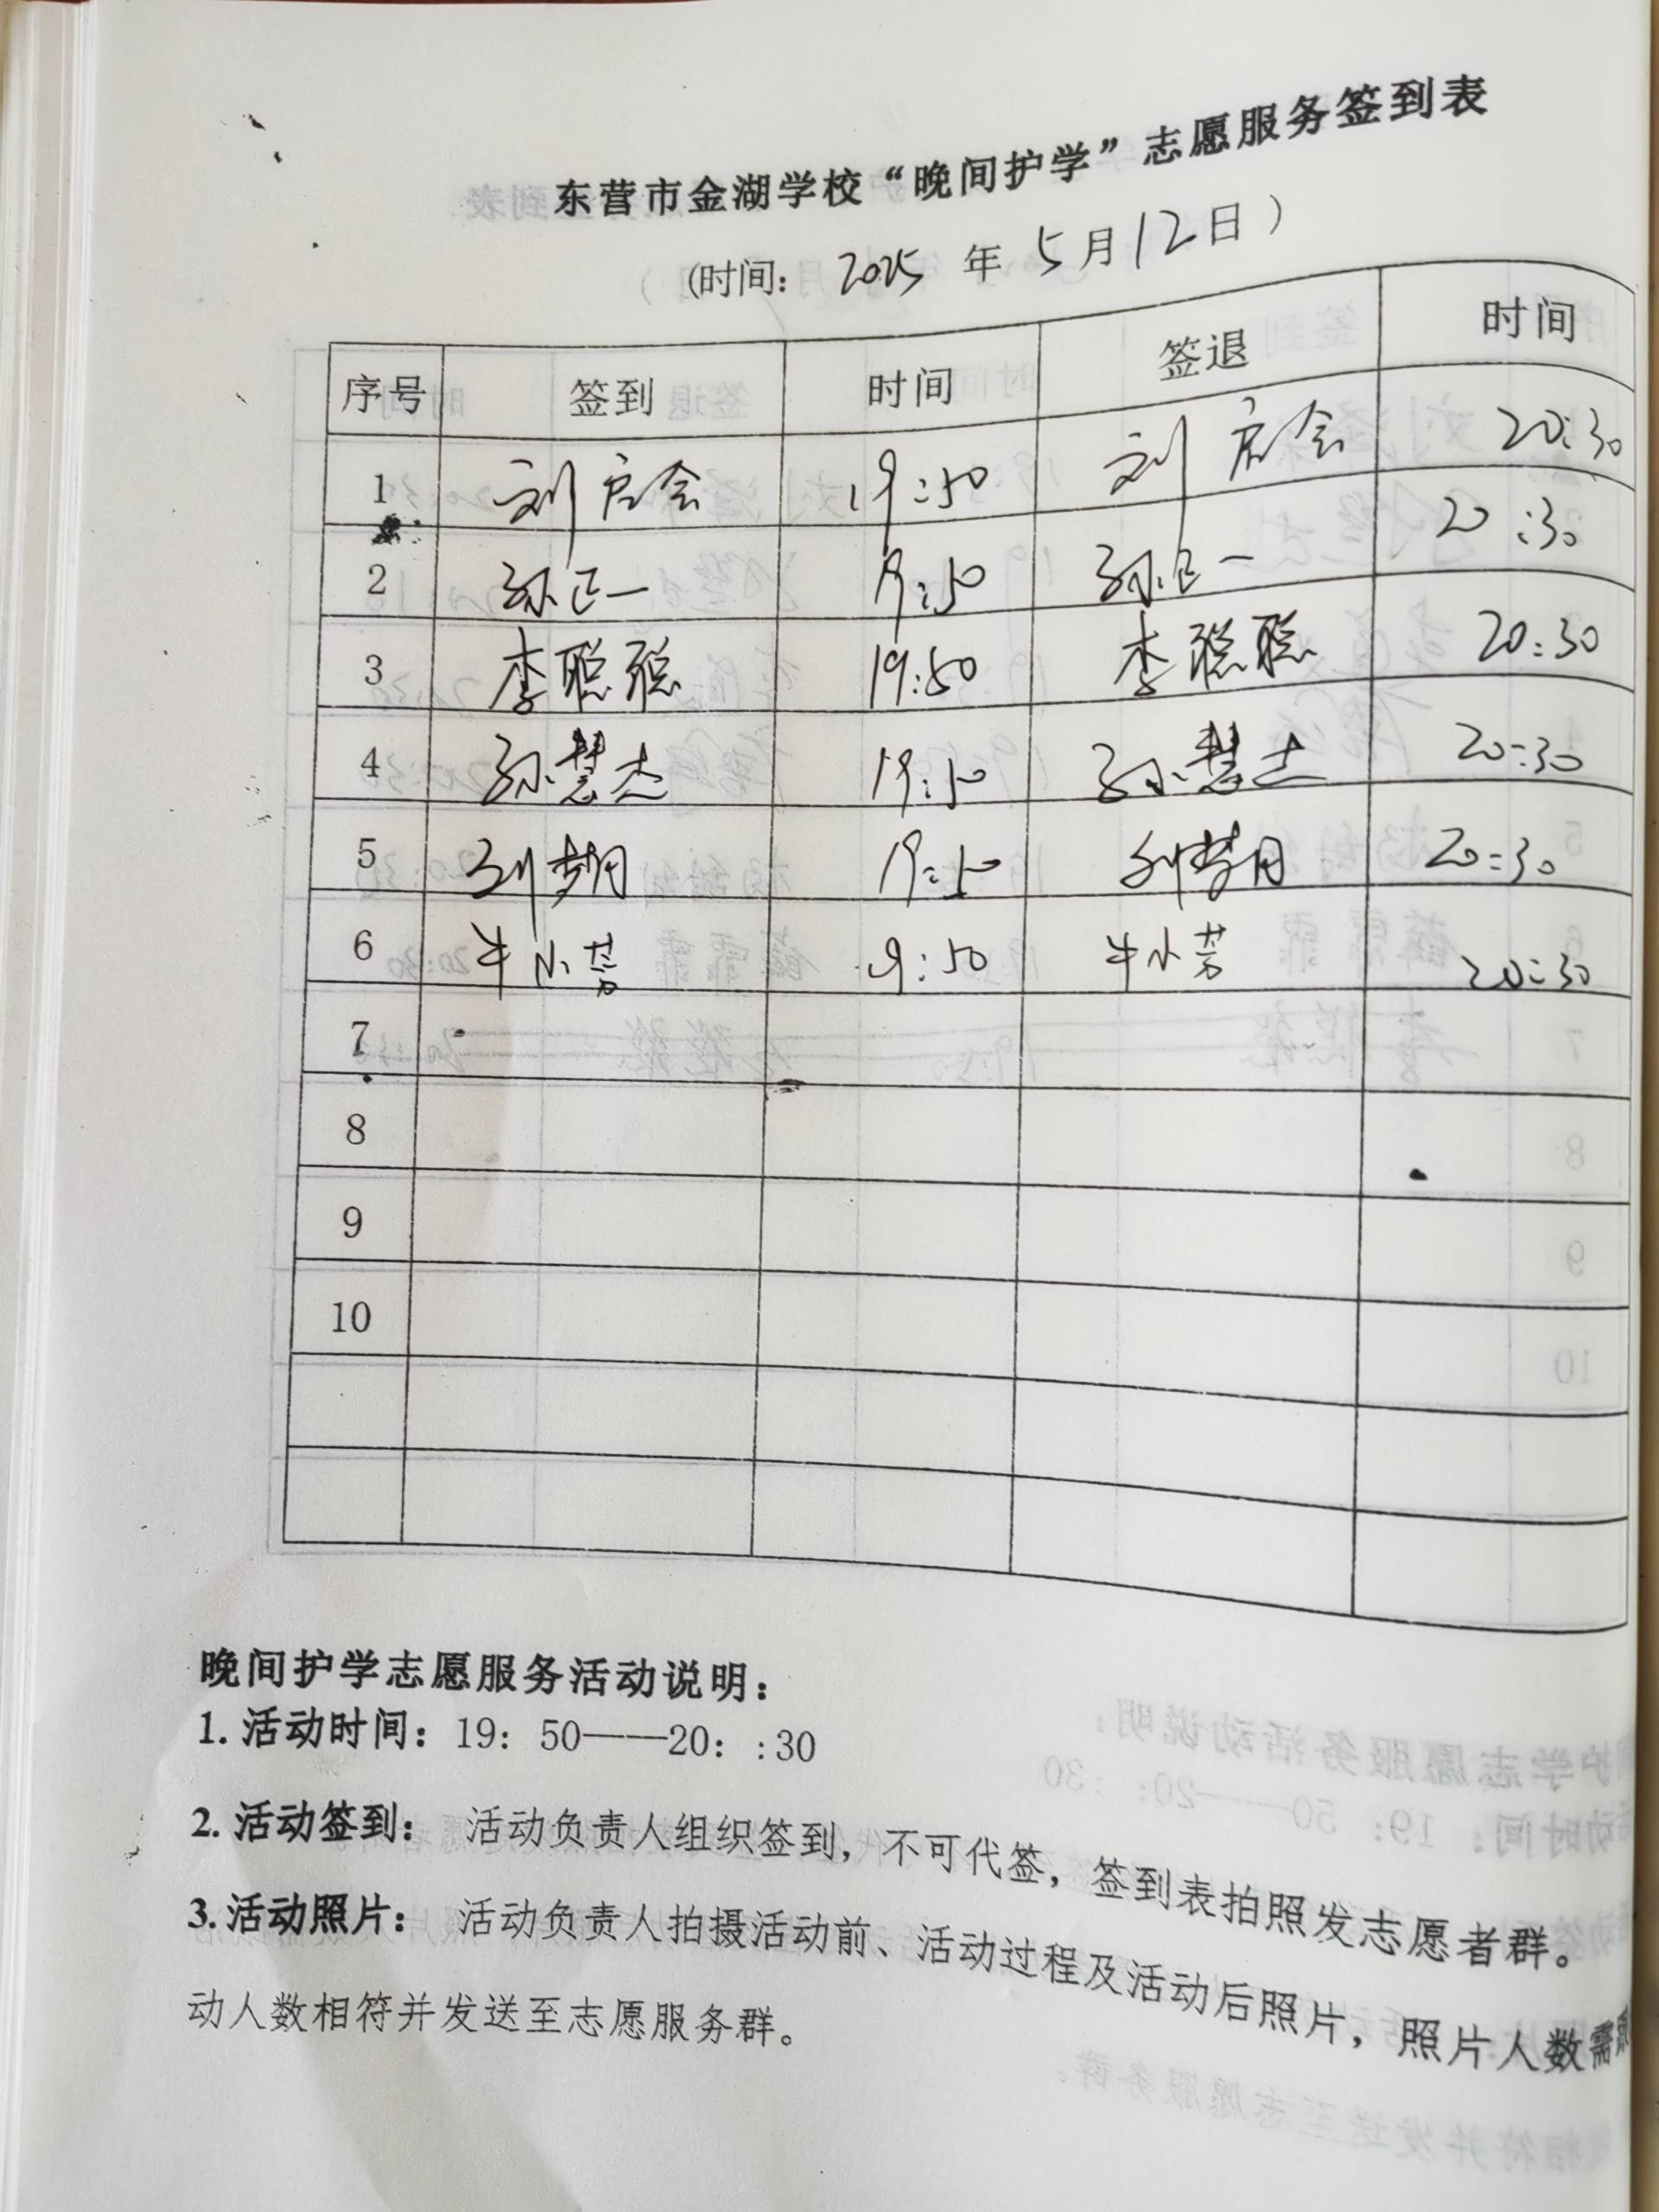 东营市金湖学校“晚间护学”志愿服务签到表
(时间: 2025 年 5 月 12 日)
序号 签到 时间 签退 时间
1 刘启会 19:50 刘启会 20:30
2 孙正一 19:50 孙正一 20:30
3 李聪聪 19:50 李聪聪 20:30
4 孙慧杰 19:50 孙慧杰 20:30
5 19:50 20:30
6 牛小芳 19:50 牛小芳 20:30
7
8
9
10
晚间护学志愿服务活动说明：
1. 活动时间：19：50——20：:30
2. 活动签到： 活动负责人组织签到，不可代签，签到表拍照发志愿者群。
3. 活动照片： 活动负责人拍摄活动前、活动过程及活动后照片，照片人数需
动人数相符并发送至志愿服务群。